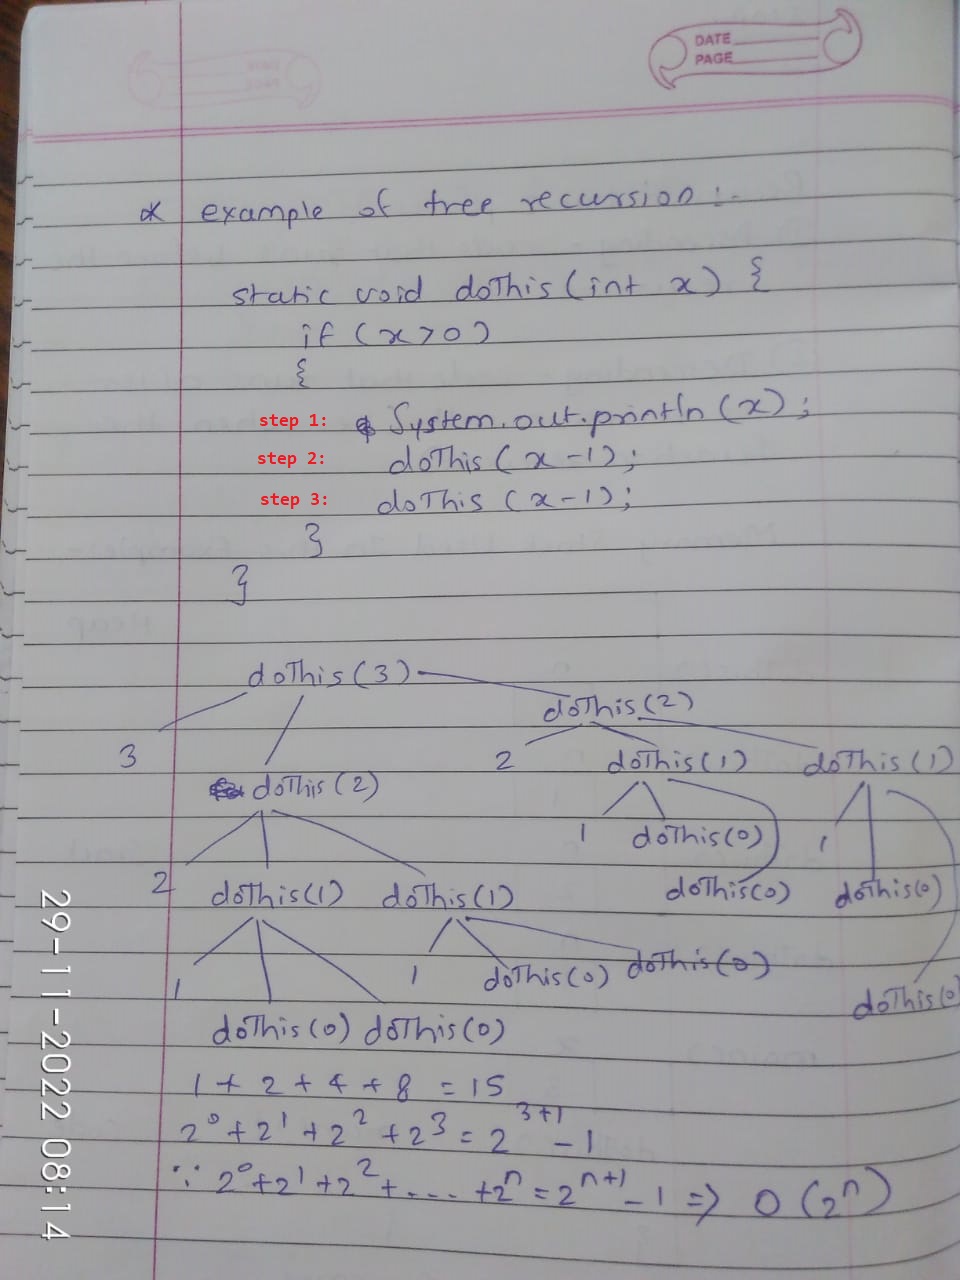 DATE
PAGE
* example of tree recursion :-
static void doThis (int x) {
if (x>0)
{
step 1: System.out.println (x);
step 2: doThis (x-1);
step 3: doThis (x-1);
}
}
doThis (3)
doThis (2)
3 2 doThis (1) doThis (1)
doThis (2)
1 doThis (0) 1
2 doThis (1) doThis (1) doThis (0) doThis (0)
1 1 doThis (0) doThis (0)
doThis (0)
doThis (0) doThis (0)
1 + 2 + 4 + 8 = 15
2⁰ + 2¹ + 2² + 2³ = 2³⁺¹ - 1
∵ 2⁰ + 2¹ + 2² + .... + 2ⁿ = 2ⁿ⁺¹ - 1 => O (2ⁿ)
29-11-2022 08:14